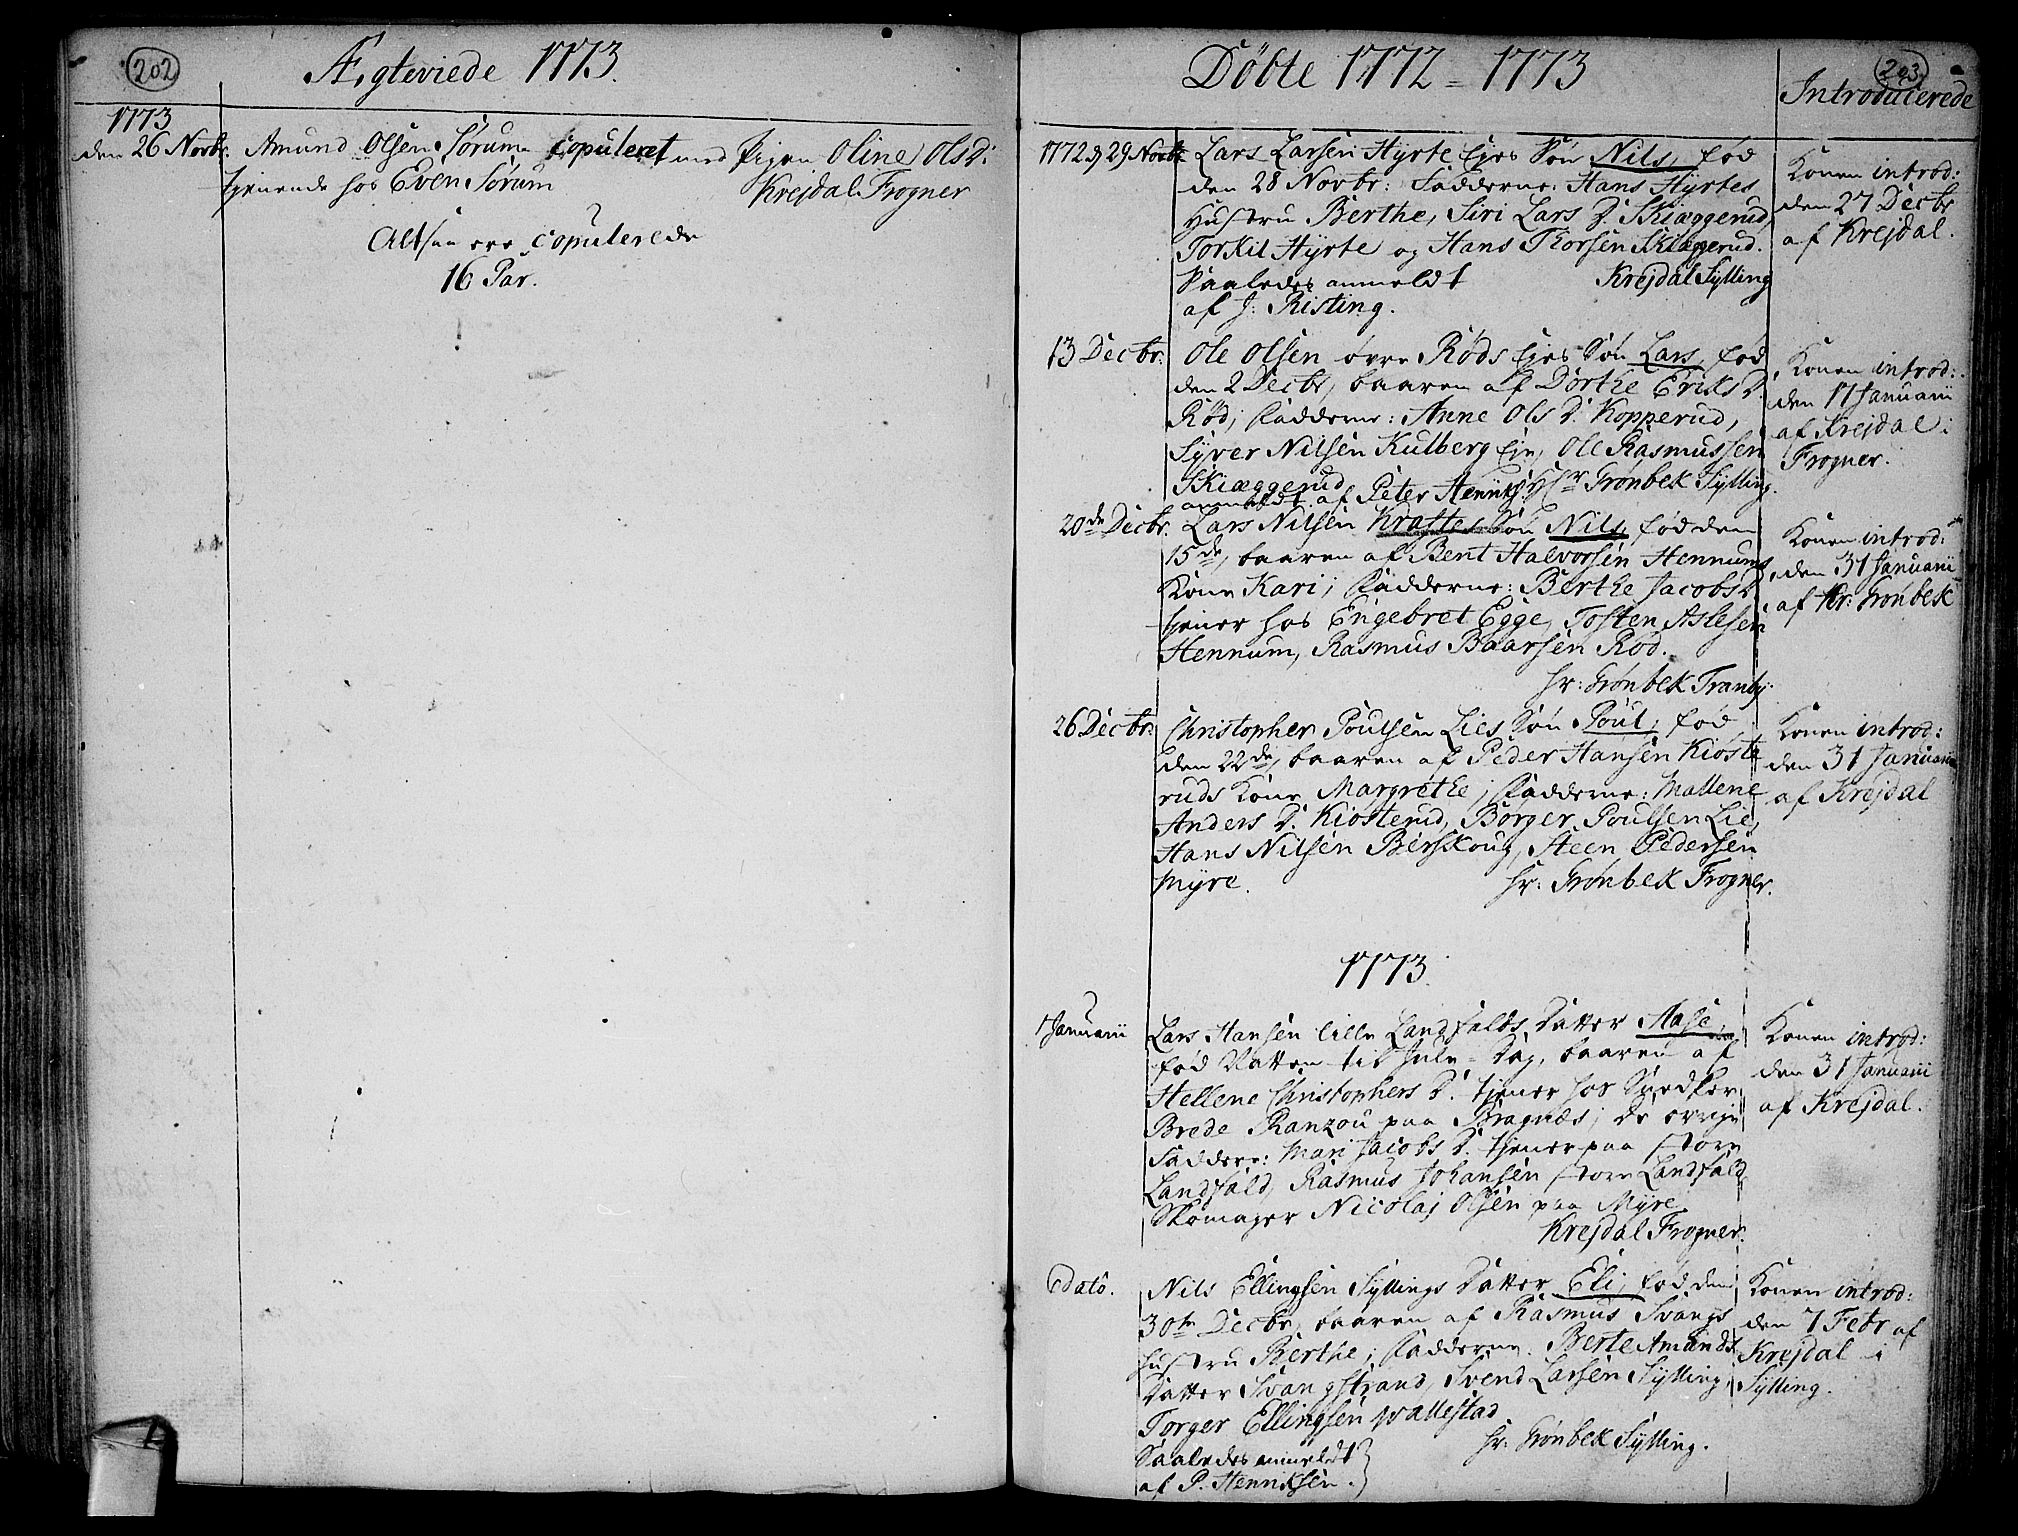 202
Ægteviede 1773.
1773
den 26 Novbr. Amund Olsen Sørum copuleret med Pigen Oline Olsd:
tjenende hos Even Sørum Krejdal Frogner
Altsaa ere copulerede
16 Par.
203
Döbte 1772 = 1773
Introducerede
1772 d. 29 Novbr. Lars Larsen Hyrte Ejes Sön Nils, fød
den 28 Novbr: Fadderne: Hans Hyrtes
Hustru Berthe, Siri Lars D. Skiæggerud,
Torkil Hyrte og Hans Thorsen Skiæggerud.
Saaledes anmeldt Krejdal Sylling
af J: Risting.
Konen introd:
den 27 Decbr
af Krejdal.
13 Decbr. Ole Olsen øvre Røds Ejes Sön Lars, fød
den 2 Decbr, baaren af Dorthe Eriks D.
Rød; Fadderne: Anne Ols D. Kopperud,
Syver Nilsen Kulberg Eje, Ole Rasmussen
Skiæggerud, Hr Grønbek Sylling.
anmeldt af Peter Henriks:
Konen introd:
den 17 Januarii
af Krejdal i
Frogner.
20de Decbr. Lars Nilsen Krattes Sön Nils, fød den
15de, baaren af Bent Halvorsen Hennums
Kone Kari; Fadderne: Berthe Jacobs D.
tjener hos Engebret Egge, Tosten Aslesen
Hennum, Rasmus Baarsen Rød.
Hr: Grønbek Tranby.
Konen introd:
den 31 Januarii
af Hr: Grønbek
26 Decbr. Christopher Poulsen Lies Sön Poul, fød
den 22de, baaren af Peder Hansen Kiøste
ruds Kone Margrethe; Fadderne: Mallene
Anders D. Kiøsterud, Børger Poulsen Lie,
Hans Nilsen Berskoug, Steen Pedersen
Myre. Hr: Grönbek Frogner.
Konen introd:
den 31 Januarii
af Krejdal
1773.
1 Januarii Lars Hansen lille Landfalds Datter Aase,
fød Natten til Jule-Dag, baaren af
Hellene Christophers D. tjener hos Snedker
Brede Ranzou paa Bragnæs; De øvrige
Faddere: Mari Jacobs D. tjener paa store
Landfald, Rasmus Johansen store Landfald,
Skomager Nicolaj Olsen paa Myre
Krejdal Frogner.
Konen introd:
den 31 Januarii
af Krejdal.
Dato. Nils Ellingsen Syllings Datter Eli, fød den
30te Decbr, baaren af Rasmus Svangs
Hustru Berthe; Fadderne. Berte Amunds
Datter Svangstrand, Svend Larsen Sylling,
Torger Ellingsen Wallestad
Hr: Grönbek Sylling.
Saaledes anmeldt
af P. Henriksen.
Konen introd:
den 7 Febr af
Krejdal i
Sylling.